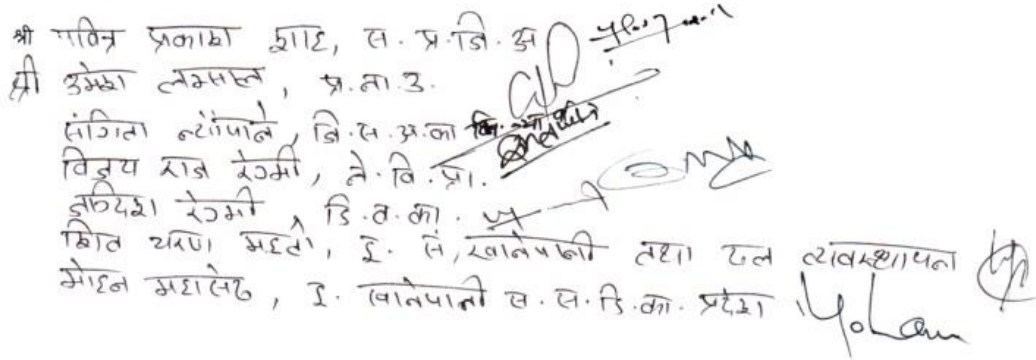 श्री पवित्र प्रकाश शाह, स. प्र. जि. अ
श्री उमेश लम्साल, प्र. ना. उ.
संगिता न्यौपाने, जि. स. अ. का
विजय राज रेग्मी, ने. वि. प्रा.
रेग्मी, डि. व. का.
शिव शरण महतो, इ. खानेपानी तथा ढल व्यवस्थापन
मोहन महासेठ, इ. खानेपानी स. स. डि. का. प्रदेश